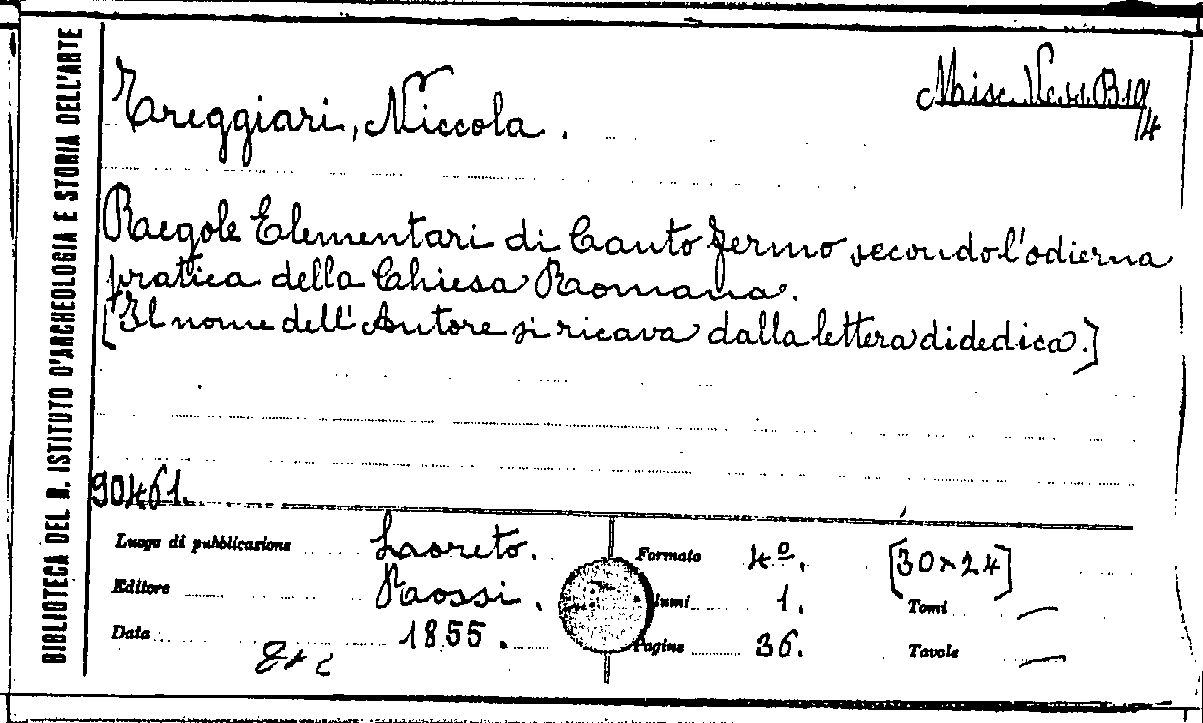 BIBLIOTECA DEL R. ISTITUTO D'ARCHEOLOGIA E STORIA DELL'ARTE
Treggiari, Niccola.
Misc. Vess. B 19/4
Regole Elementari di Canto fermo secondo l'odierna
pratica della Chiesa Romana.
[Il nome dell'Autore si ricava dalla lettera di dedica.]
90461.
Luogo di pubblicazione Loreto. Formato 4º. [30×24]
Editore Rossi. Volumi 1. Tomi —
Data 1855. Pagine 36. Tavole —